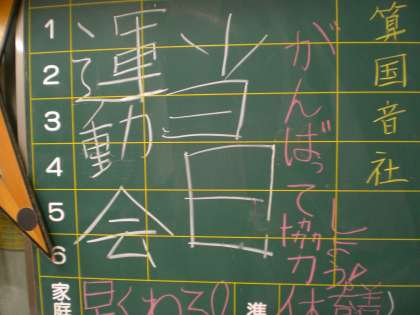 算国音社
がんばって協力
しよう
運動会
当日
1
2
3
4
5
6
家庭
早くねる
準
体